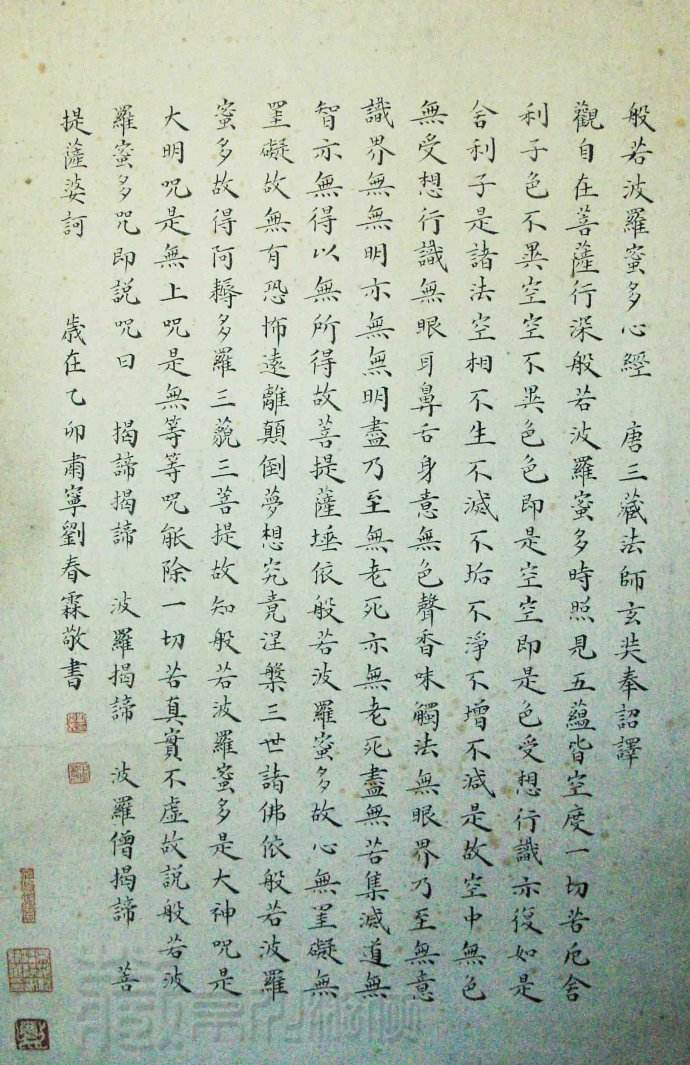 般若波羅蜜多心經　唐三藏法師玄奘奉詔譯
觀自在菩薩行深般若波羅蜜多時照見五蘊皆空度一切苦厄舍
利子色不異空空不異色色即是空空即是色受想行識亦復如是
舍利子是諸法空相不生不滅不垢不淨不增不減是故空中無色
無受想行識無眼耳鼻舌身意無色聲香味觸法無眼界乃至無意
識界無無明亦無無明盡乃至無老死亦無老死盡無苦集滅道無
智亦無得以無所得故菩提薩埵依般若波羅蜜多故心無罣礙無
罣礙故無有恐怖遠離顛倒夢想究竟涅槃三世諸佛依般若波羅
蜜多故得阿耨多羅三藐三菩提故知般若波羅蜜多是大神咒是
大明咒是無上咒是無等等咒能除一切苦真實不虛故說般若波
羅蜜多咒即說咒曰　揭諦揭諦　波羅揭諦　波羅僧揭諦　菩
提薩婆訶　歲在乙卯肅寧劉春霖敬書